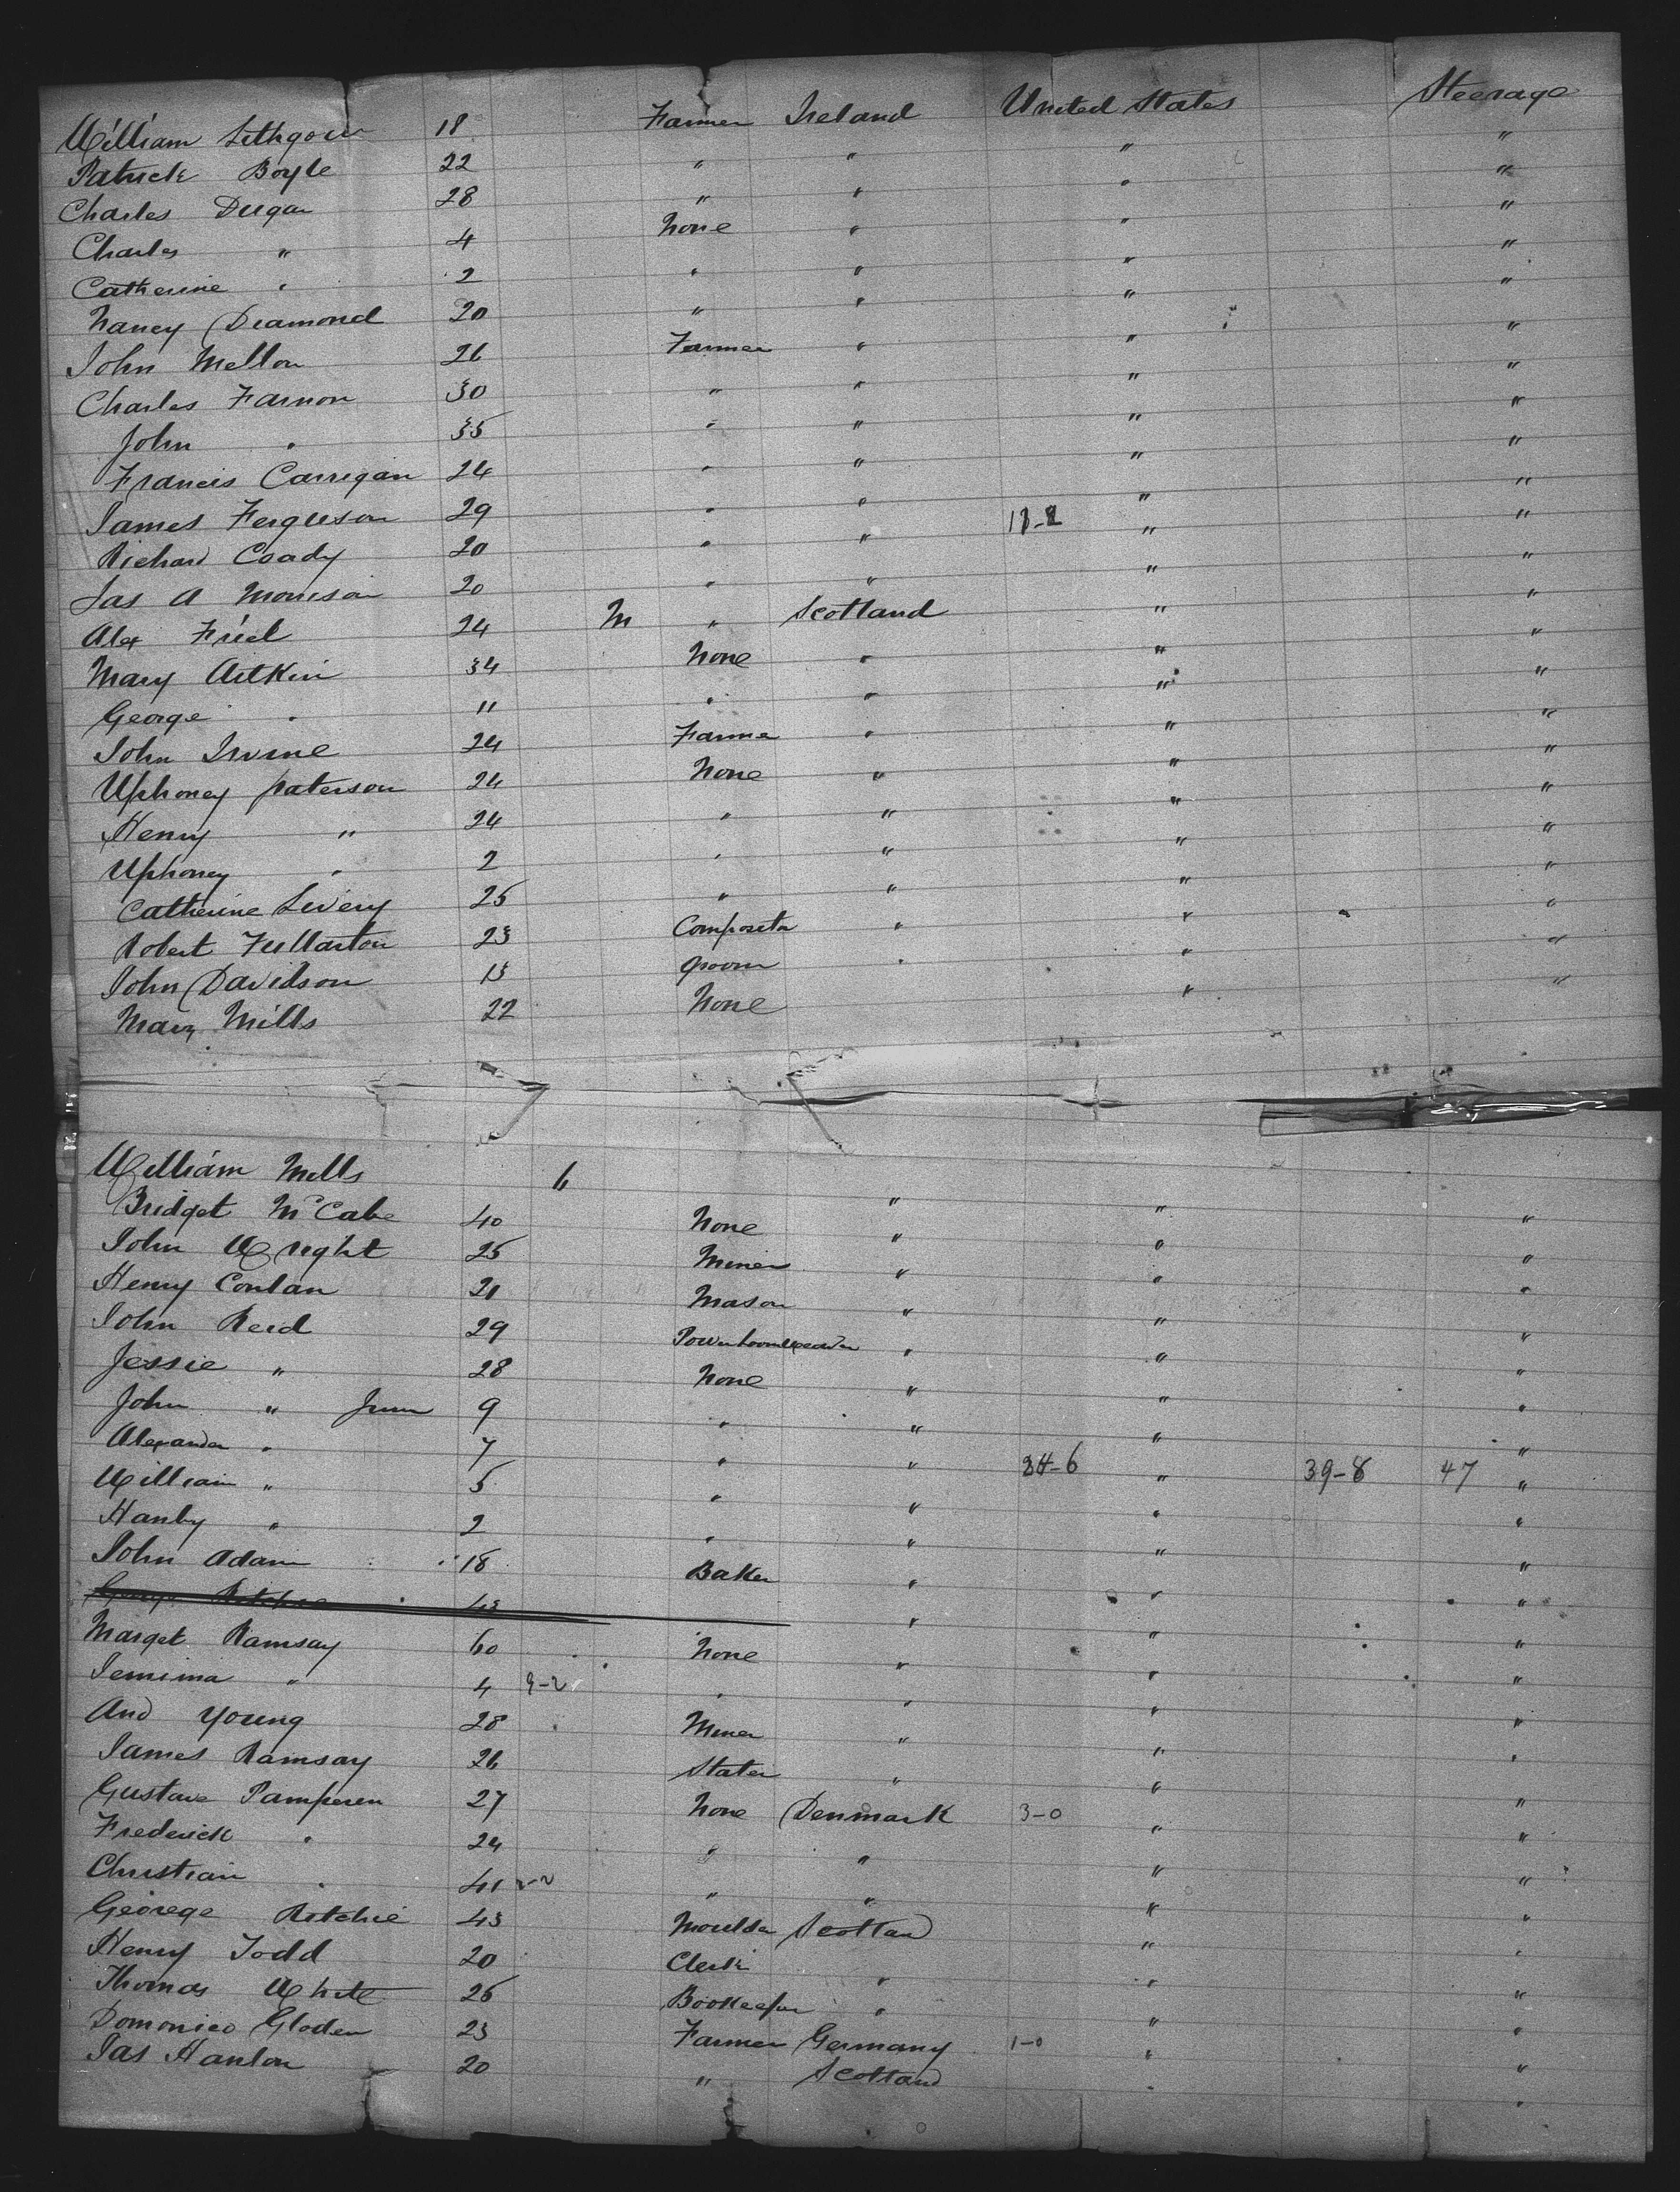 William Lithgow 18 Farmer Ireland United States Steerage
Patrick Boyle 22 " " " "
Charles Dugan 28 " " " "
Charles " 4 None " " "
Catherine " 2 " " " "
Nancy Diamond 20 " " " "
John Mellon 26 Farmer " " "
Charles Farnon 30 " " " "
John " 35 " " " "
Francis Carrigan 24 " " " "
James Ferguson 29 " " " "
Richard Coady 20 " " " "
Jas A Morrison 20 " " " "
Alex Friel 24 M " Scotland " "
Mary Aitkin 34 None " " "
George " 11 " " " "
John Irvine 24 Farmer " " "
Uphoney Paterson 24 None " " "
Henry " 24 " " " "
Uphoney " 2 " " " "
Catherine Livery 25 " " " "
Robert Fullarton 23 Compositor " " "
John Davidson 13 Groom " " "
Mary Mills 22 None " "
William Mills 6 " " "
Bridget McCabe 40 None " " "
John Wright 25 Miner " " "
Henry Conlan 21 Mason " " "
John Reid 29 Powerloomweaver " " "
Jessie " 28 None " " "
John " Junr 9 " " " "
Alexander " 7 " " " "
William " 5 " " 34-6 " 39-8 47 "
Hanby " 2 " " " "
John Adam 18 Baker " " "
George Ritchie 43 " " "
Marget Ramsay 60 None " " "
Jemima " 4 9-2 " " " "
And Young 28 Miner " " "
James Ramsay 26 Slater " " "
Gustave Pamperen 27 None Denmark 3-0 " "
Frederick " 24 " " " "
Christian " 41 2-2 " " " "
George Ritchie 43 Moulder Scotland " "
Henry Todd 20 Clerk " " "
Thomas White 25 Bookeeper " " "
Domonico Gloden 23 Farmer Germany 1-0 " "
Jas Hanlon 20 " Scotland " "